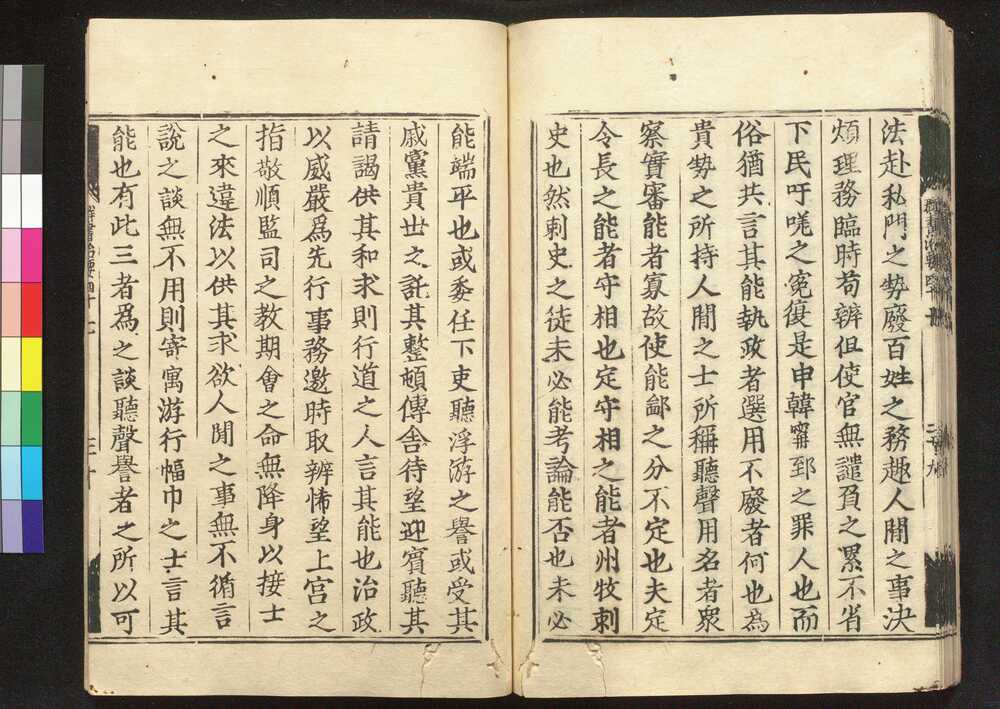 法赴私門之勢廢百姓之務趣人間之事決
煩理務臨時苟辨但使官無譴負之累不省
下民吁嗟之冤復是申韓甯郅之罪人也而
俗猶共言其能執政者選用不廢者何也為
貴勢之所持人間之士所稱聽聲用名者衆
察實審能者寡故使能鄙之分不定也夫定
令長之能者守相也定守相之能者州牧刺
史也然刺史之徒未必能考論能否也未必
能端平也或委任下吏聽浮游之譽或受其
戚黨貴世之託其整頓傳舍待望迎賓聽其
請謁供其和求則行道之人言其能也治政
以威嚴爲先行事務邀時取辨悕望上官之
指敬順監司之教期會之命無降身以接士
之來違法以供其求欲人間之事無不循言
說之談無不用則寄寓游行幅巾之士言其
能也有此三者爲之談聽聲譽者之所以可
群書治要四十七
三十